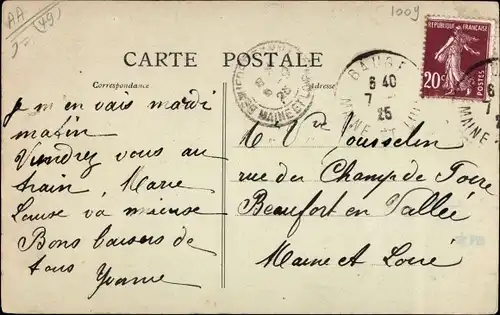 AA
(49)
1009
CARTE POSTALE
Correspondance
Adresse
RÉPUBLIQUE FRANÇAISE
20c
BAUGÉ
6 40
7
25
MAINE ET LOIRE
MAINE ET
Je m en vais mardi
matin
Viendrez vous au
train, Marie
Louise va mieuse
Bons baisers de
tous Yvonne
M. Vve Jousselin
rue du Champ de Foire
Beaufort en Vallée
Maine et Loire